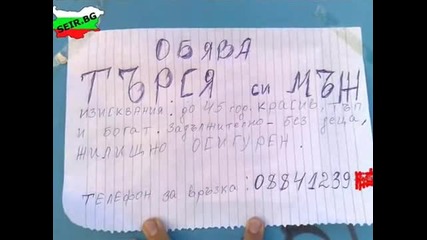 SEIR.BG
ОБЯВА
ТЪРСЯ си МЪЖ
изисквния: до 45 год. красив, тъп
и богат. Задължително - без деца,
жилищно осигурен.
телефон за връзка: 08841239